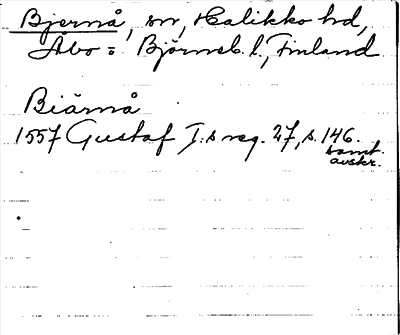 Bjernå, sn, Halikko hd,
Åbo = Björneb. l., Finland
Biärnå
1557 Gustaf I:s reg. 27, s. 146.
samt.
avskr.